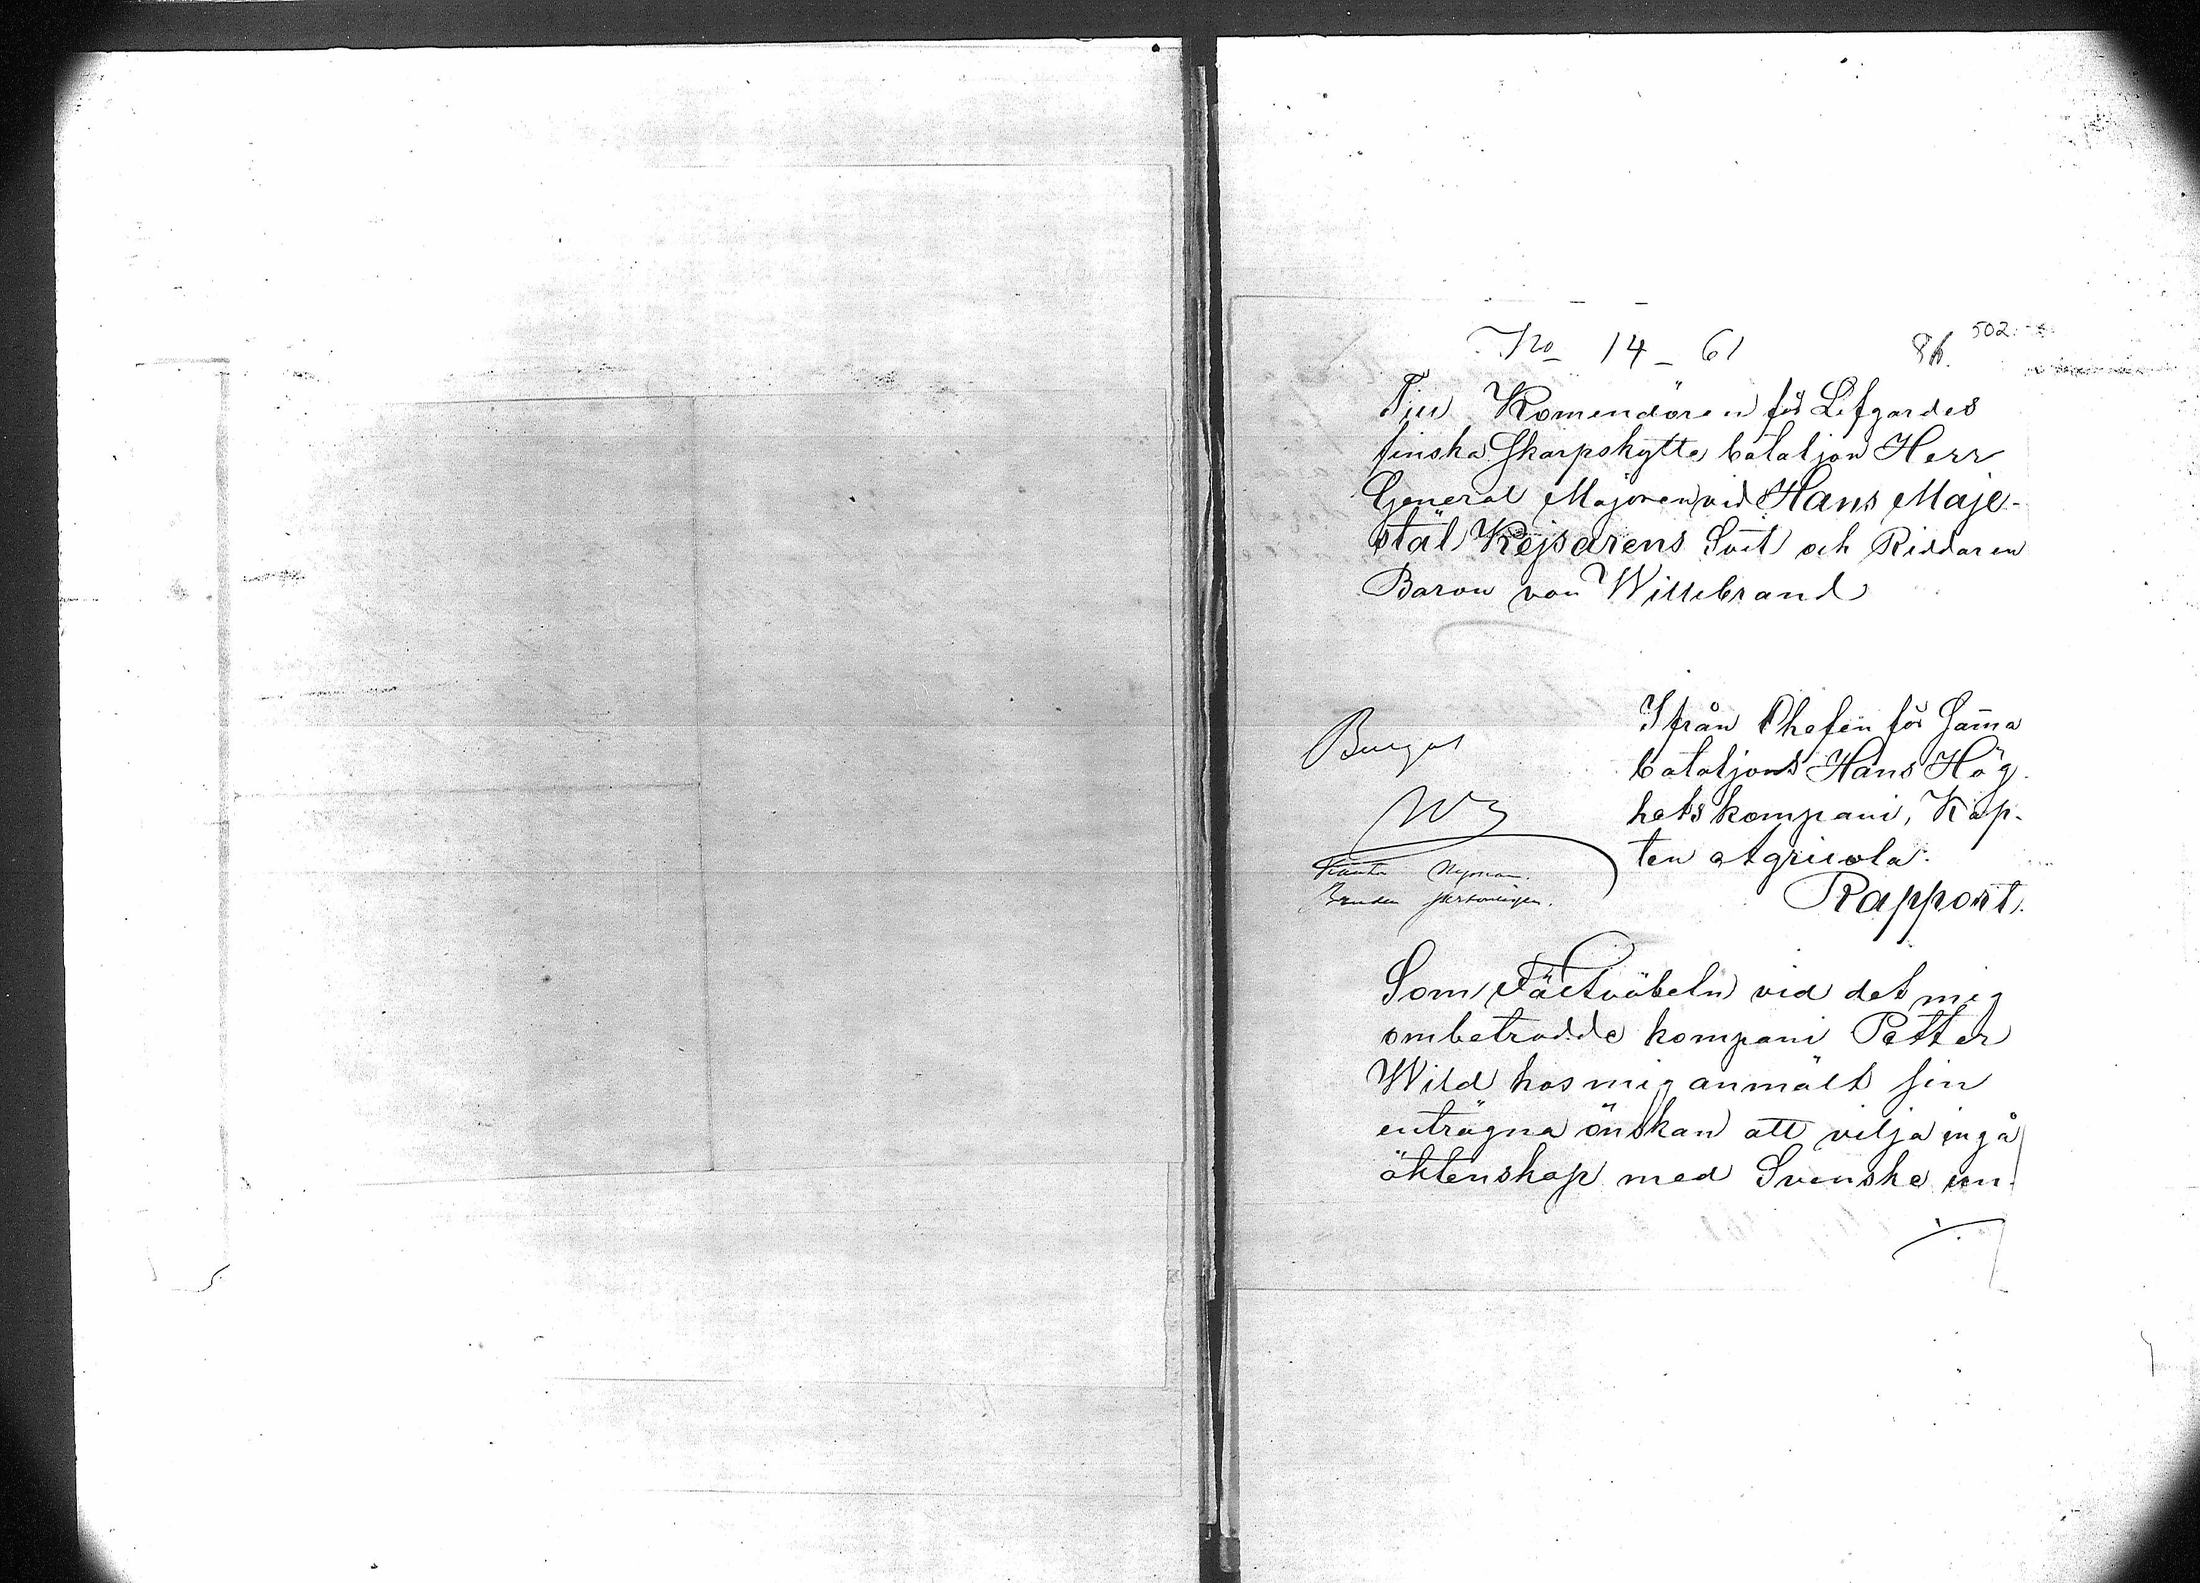 No 14 - 61
502.
Till Komendören för Lifgardes
finska Skarpskytte bataljon Herr
General Majoren vid Hans Maje-
stät Kejsarens Svit och Riddaren
Baron von Willebrand
Ifrån Chefen för Sama
bataljons Hans Hög
hets kompani, Kap-
ten Agricola.
Rapport.
Nyman.
Som Fältväbeln vid det mig
ombetrodde kompani Petter
Wild hos mig anmält sin
enträgna önskan att vilja ingå
äktenskap med Svenske un-